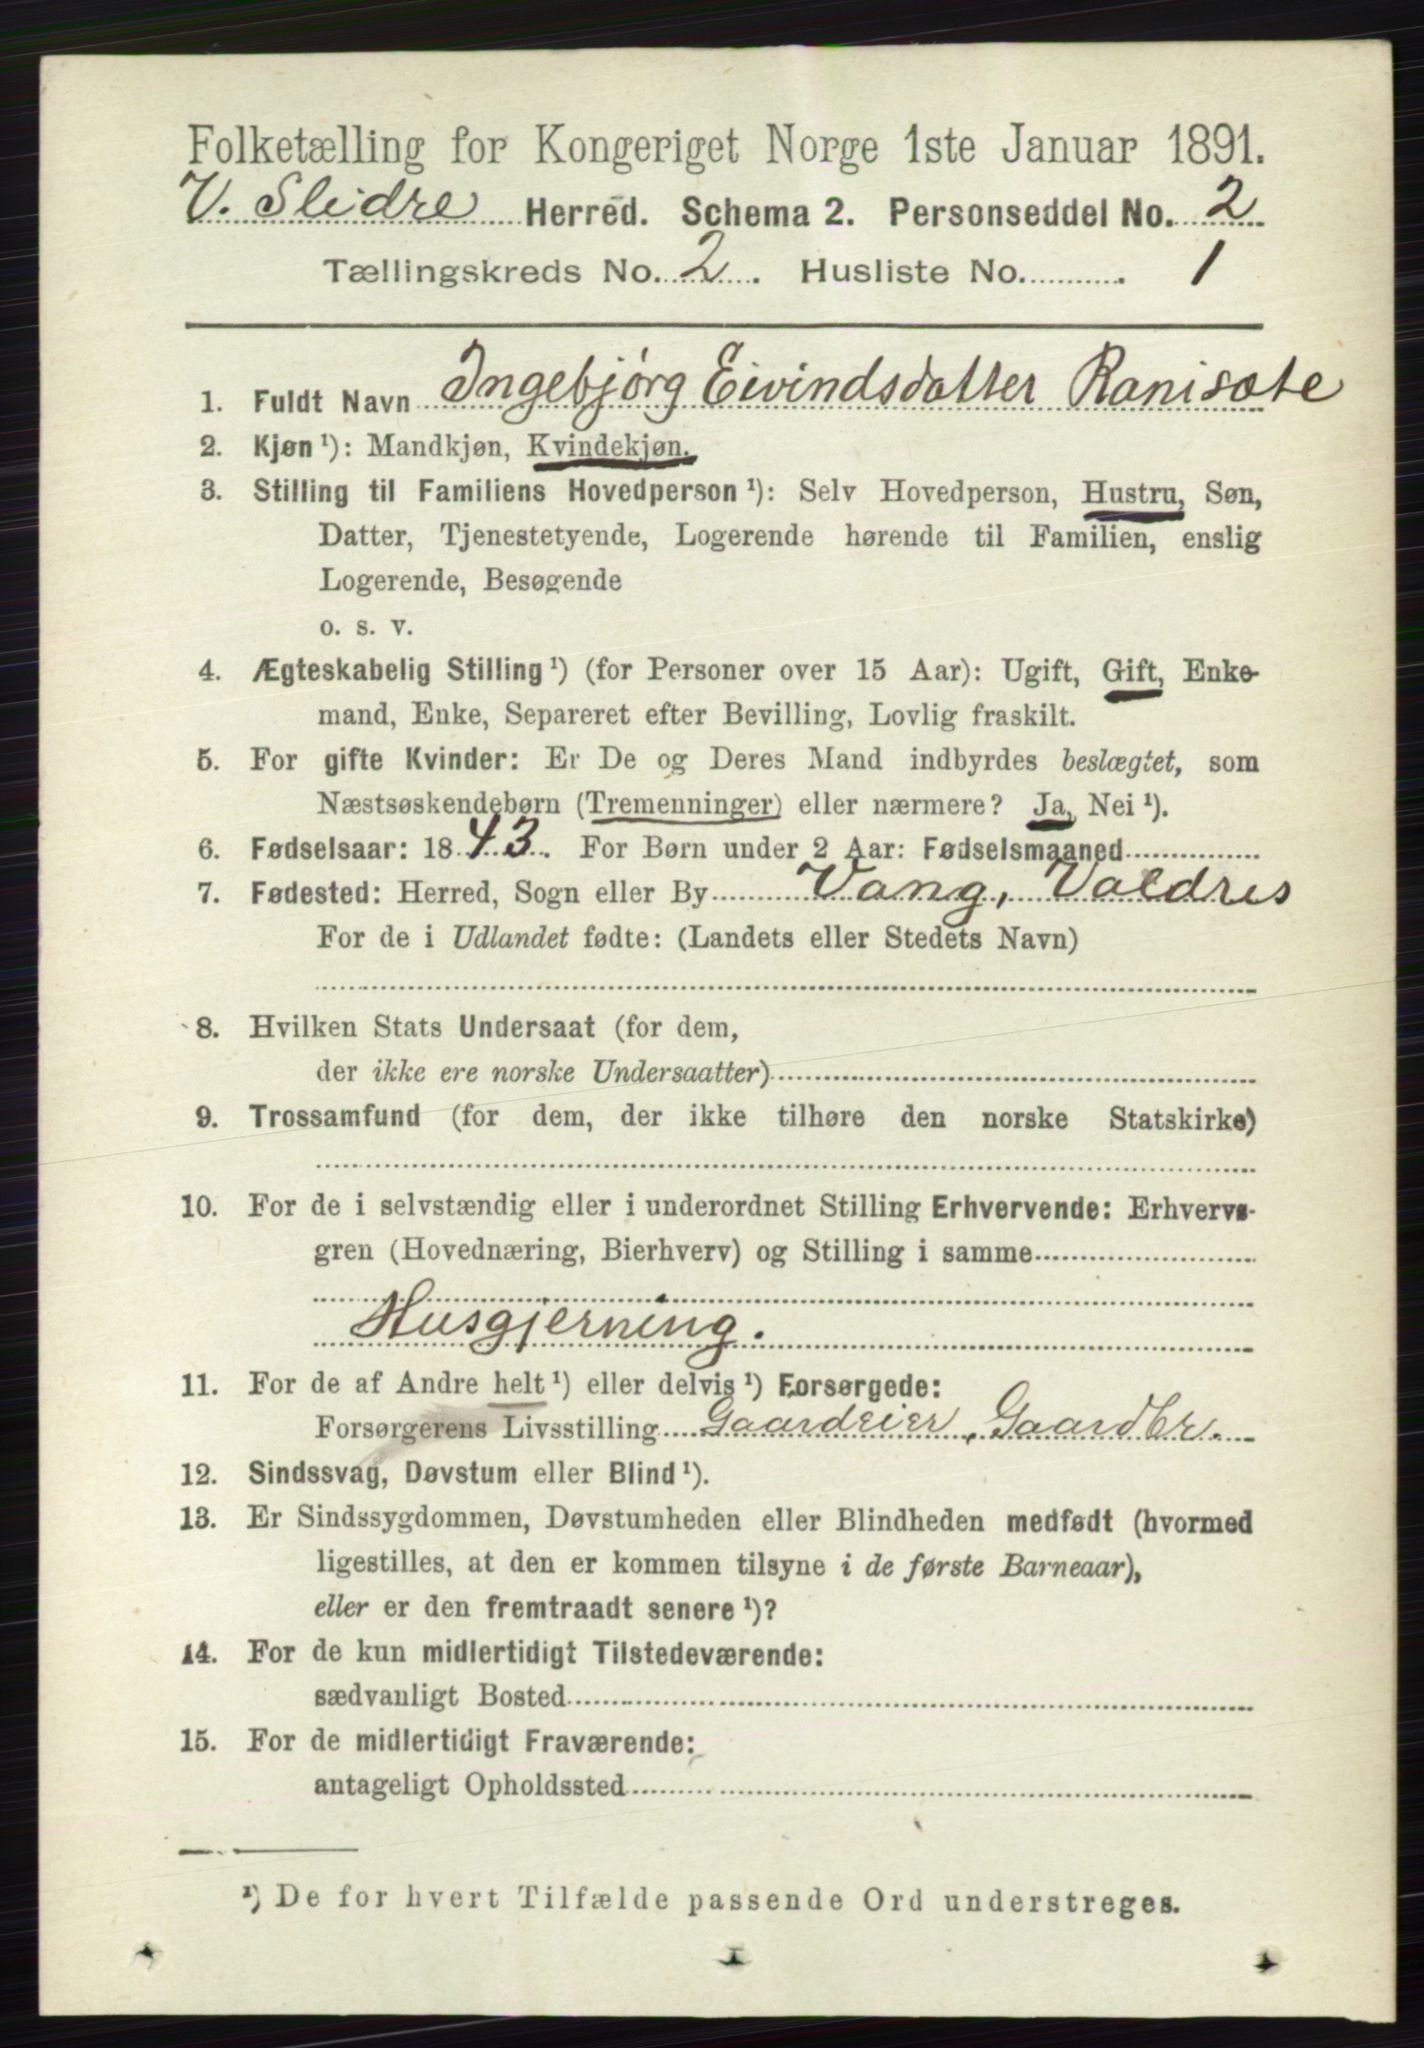 Folketælling for Kongeriget Norge 1ste Januar 1891.
V. Slidre Herred. Schema 2. Personseddel No. 2
Tællingskreds No. 2. Husliste No. 1
1. Fuldt Navn Ingebjørg Eivindsdatter Ranisote
2. Kjøn ¹): Mandkjøn, Kvindekjøn.
3. Stilling til Familiens Hovedperson ¹): Selv Hovedperson, Hustru, Søn,
Datter, Tjenestetyende, Logerende hørende til Familien, enslig
Logerende, Besøgende
o. s. v.
4. Ægteskabelig Stilling ¹) (for Personer over 15 Aar): Ugift, Gift, Enke-
mand, Enke, Separeret efter Bevilling, Lovlig fraskilt.
5. For gifte Kvinder: Er De og Deres Mand indbyrdes beslægtet, som
Næstsøskendebørn (Tremenninger) eller nærmere? Ja, Nei ¹).
6. Fødselsaar: 1843. For Børn under 2 Aar: Fødselsmaaned
7. Fødested: Herred, Sogn eller By Vang, Valdres
For de i Udlandet fødte: (Landets eller Stedets Navn)
8. Hvilken Stats Undersaat (for dem,
der ikke ere norske Undersaatter)
9. Trossamfund (for dem, der ikke tilhøre den norske Statskirke)
10. For de i selvstændig eller i underordnet Stilling Erhvervende: Erhvervs-
gren (Hovednæring, Bierhverv) og Stilling i samme
Husgjerning.
11. For de af Andre helt ¹) eller delvis ¹) Forsørgede:
Forsørgerens Livsstilling Gaardeier, Gaardbr.
12. Sindssvag, Døvstum eller Blind ¹).
13. Er Sindssygdommen, Døvstumheden eller Blindheden medfødt (hvormed
ligestilles, at den er kommen tilsyne i de første Barneaar),
eller er den fremtraadt senere ¹)?
14. For de kun midlertidigt Tilstedeværende:
sædvanligt Bosted
15. For de midlertidigt Fraværende:
antageligt Opholdssted
¹) De for hvert Tilfælde passende Ord understreges.